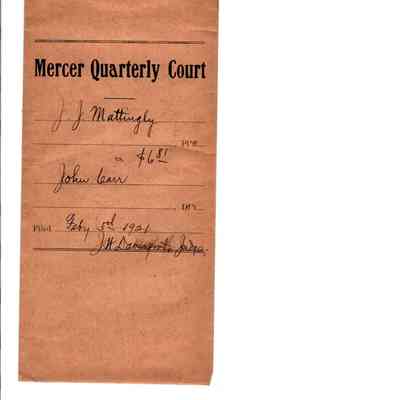 Mercer Quarterly Court
J. J. Mattingly
Pltff.
vs $6 81
John Carr
Def't.
Filed Feby 3rd 1921
J. W. Davenport Judge